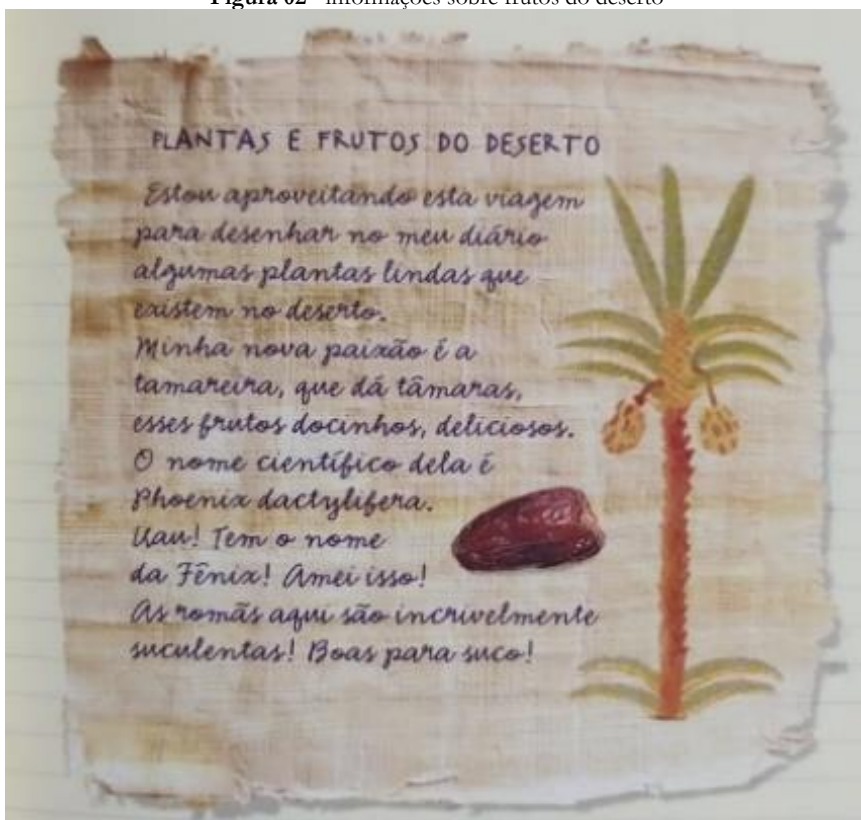 Figura 02 - Informações sobre frutos do deserto
PLANTAS E FRUTOS DO DESERTO
Estou aproveitando esta viagem
para desenhar no meu diário
algumas plantas lindas que
existem no deserto.
Minha nova paixão é a
tamareira, que dá tâmaras,
esses frutos docinhos, deliciosos.
O nome científico dela é
Phoenix dactylifera.
Uau! Tem o nome
da Fênix! Amei isso!
As romãs aqui são incrivelmente
suculentas! Boas para suco!